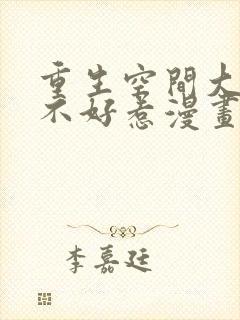 重生空間大
不好惹漫畫
李嘉廷